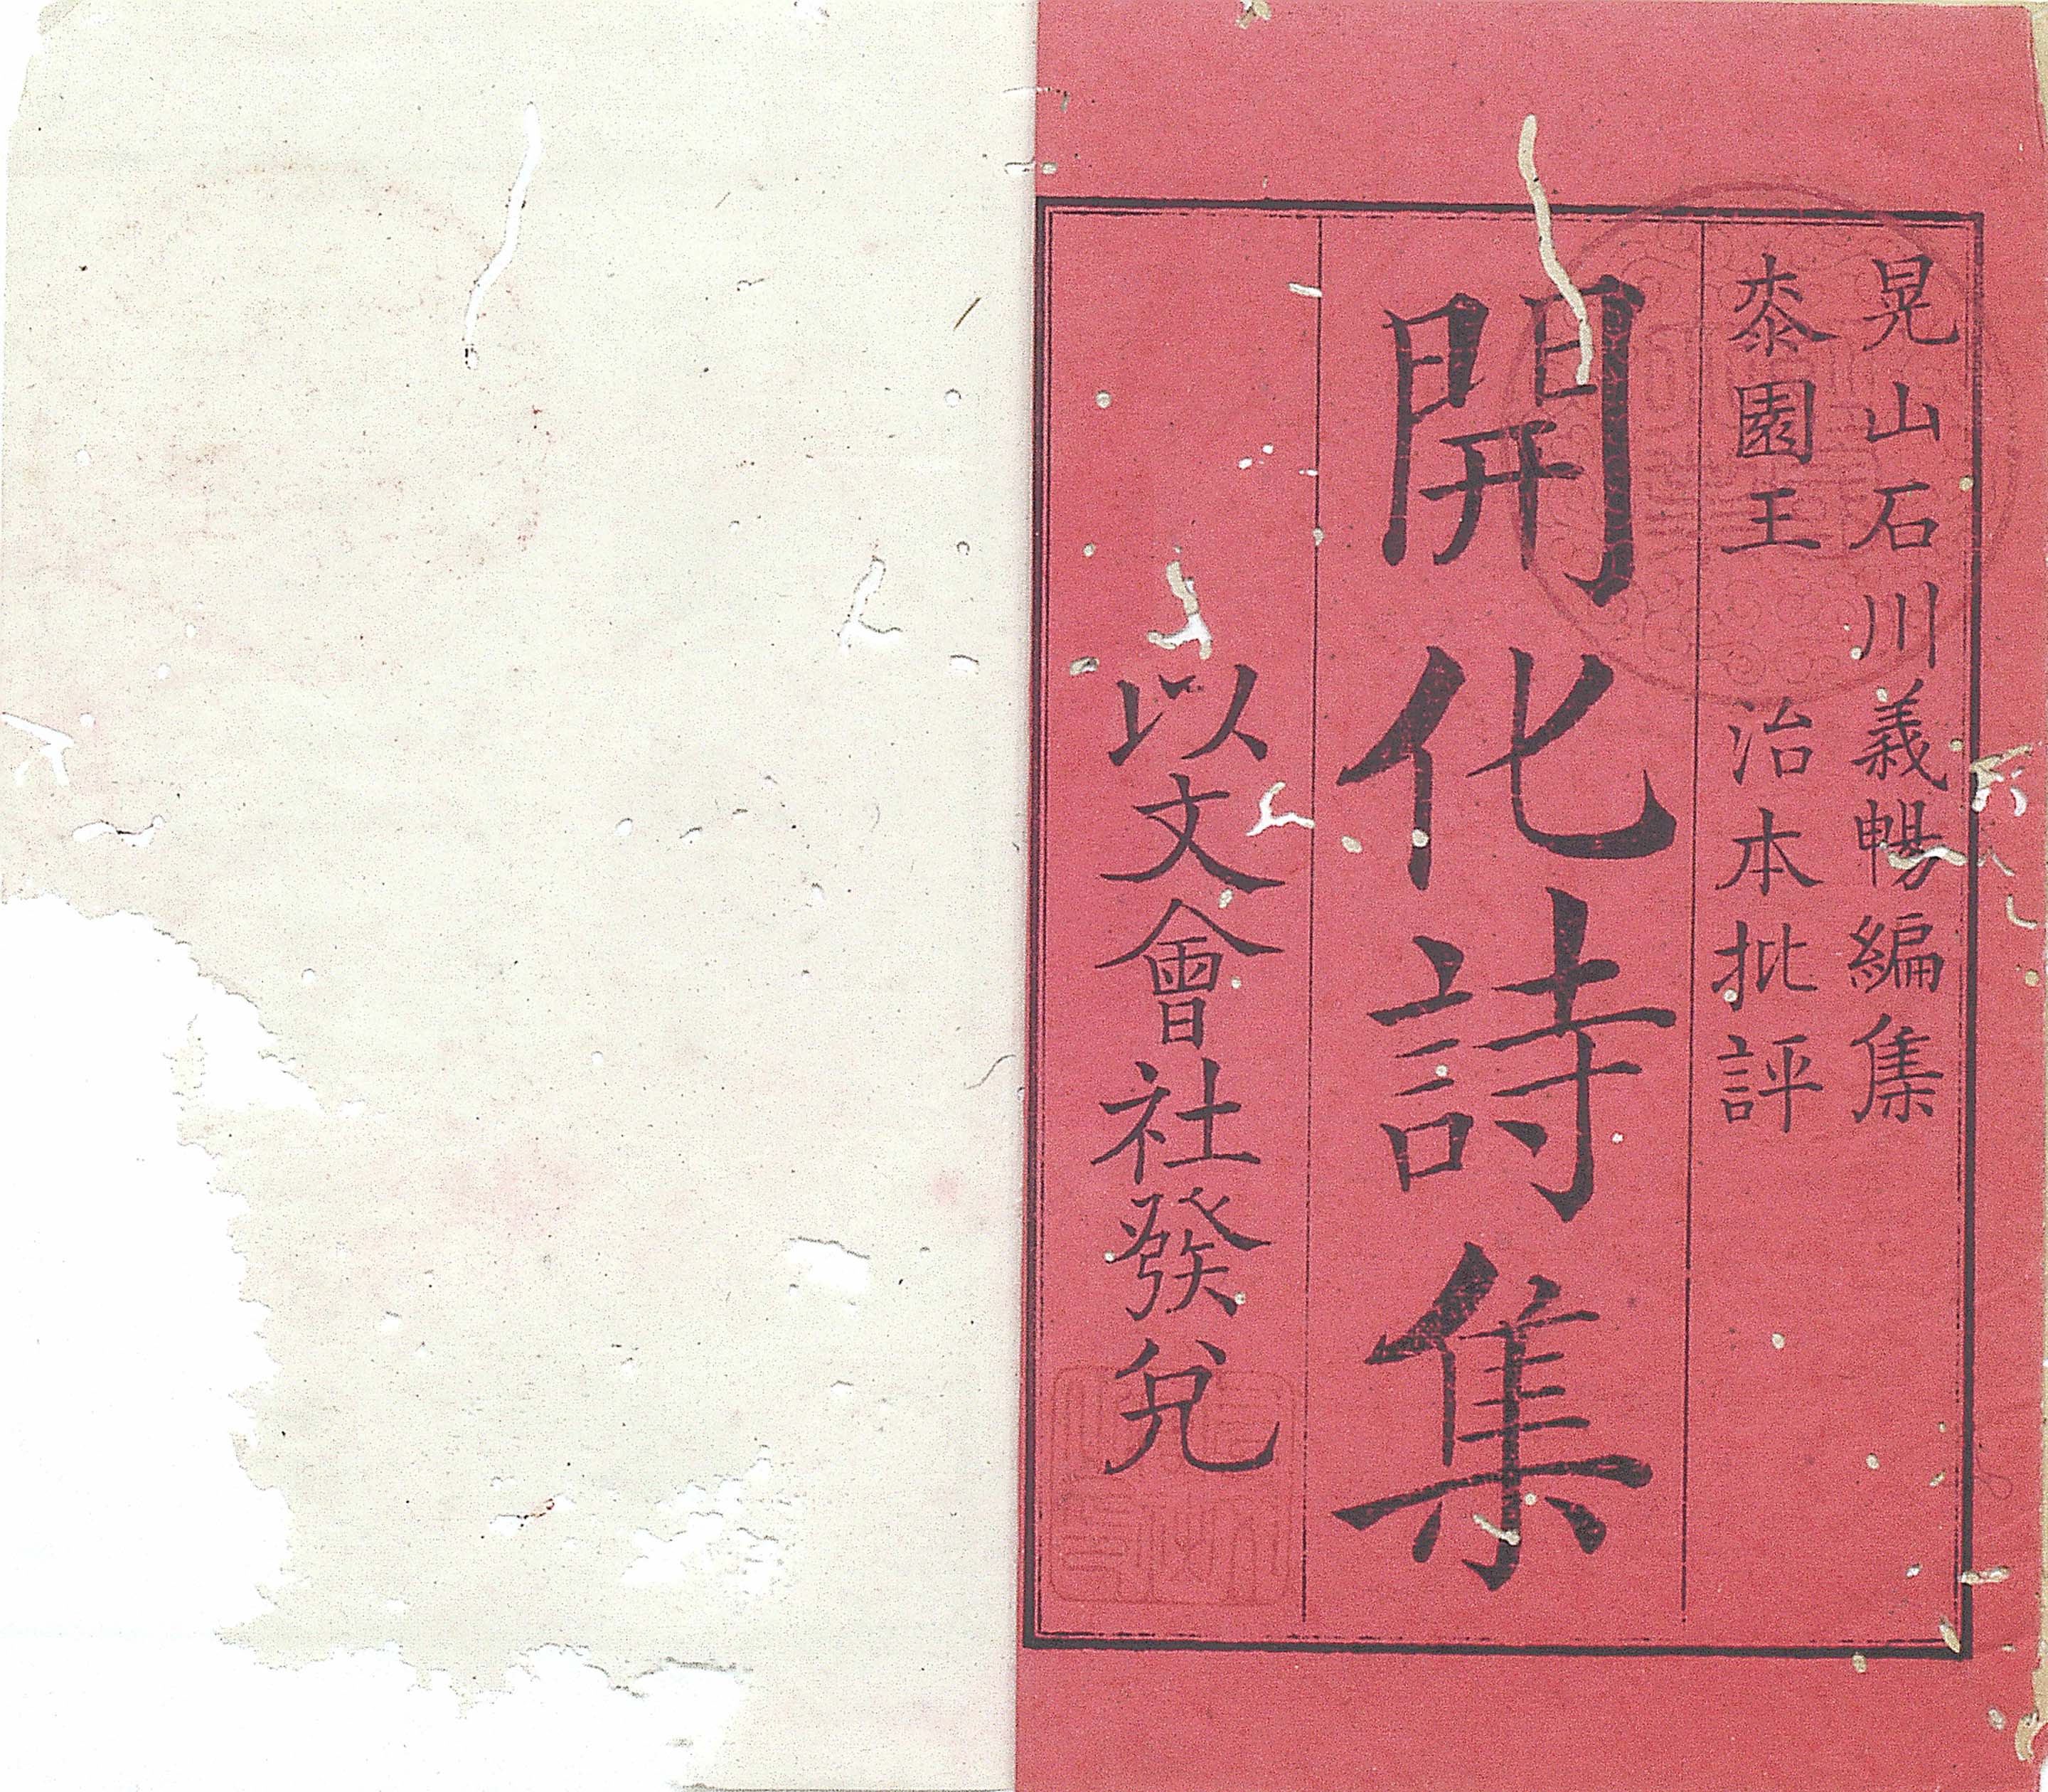 晃山石川義暢編集
桼園王治本批評
開化詩集
以文會社發兌